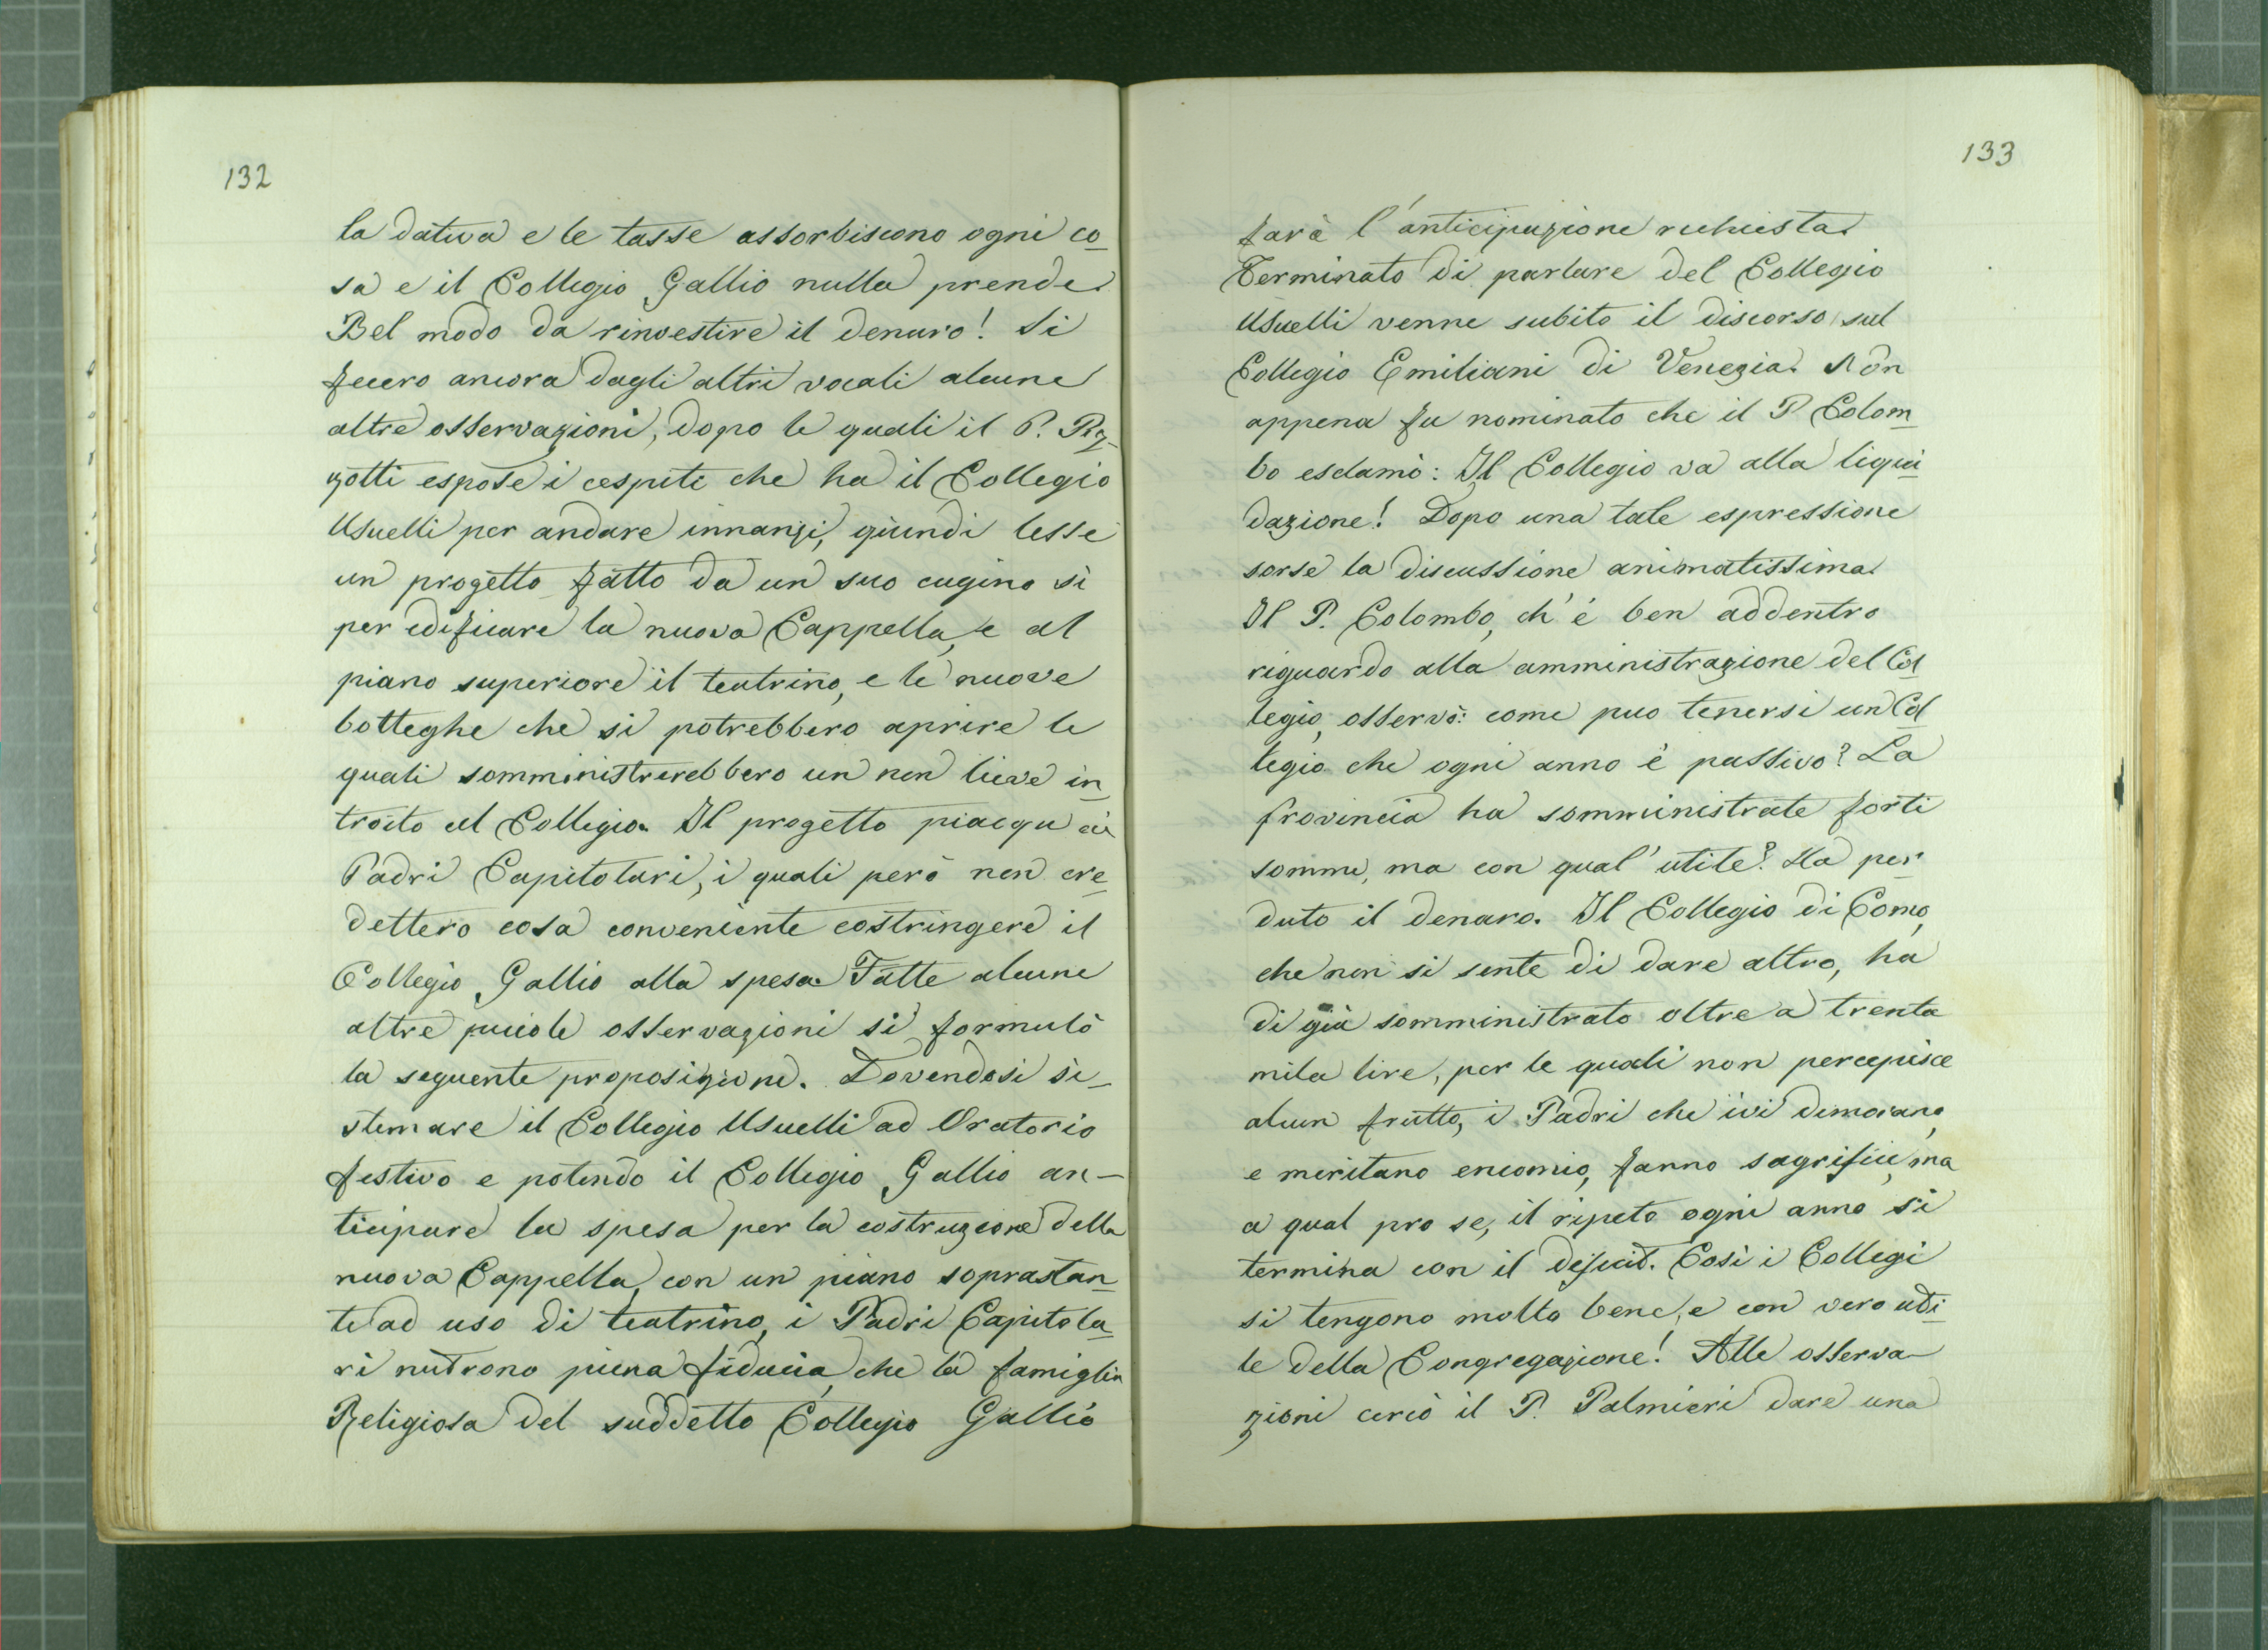 132
la dativa e le tasse assorbiscono ogni co
sa e il Collegio Gallio nulla prende.
Bel modo da rinvestire il denaro! Si
fecero ancora dagli altri vocali alcune
altre osservazioni, dopo le quali il P. Piz-
zotti espose i cespite che ha il Collegio
Usuelli per andare innanzi, quindi lesse
un progetto fatto da un suo cugino sì
per edificare la nuova Cappella, e al
piano superiore il teatrino, e le nuove
botteghe che si potrebbero aprire le
quali somministrerebbero un non lieve in
troito al Collegio. Il progetto piacque ai
Padri Capitolari, i quali però non cre
dettero cosa conveniente costringere il
Collegio Gallio alla spesa. Fatte alcune
altre piccole osservazioni si formulò
la seguente proposizione. Dovendosi si-
stemare il Collegio Usuelli ad Oratorio
festivo e potendo il Collegio Gallio an-
ticipare la spesa per la costruzione della
nuova Cappella, con un piano soprastan
te ad uso di teatrino, i Padri Capitola
ri nutrono piena fiducia, che la famiglia
Religiosa del suddetto Collegio Gallio
133
farà l'anticipazione richiesta.
Terminato di parlare del Collegio
Usuelli venne subito il discorso sul
Collegio Emiliani di Venezia. Non
appena fu nominato che il P Colom
bo esclamò: Il Collegio va alla liqui
dazione! Dopo una tale espressione
sorse la discussione animatissima.
Il P. Colombo, ch'è ben addentro
riguardo alla amministrazione del Col
legio, osservò: come puo tenersi un Col
legio che ogni anno è passivo? La
provincia ha somministrate forti
somme, ma con qual' utile? Ha per
duto il denaro. Il Collegio di Como,
che non si sente di dare altro, ha
di già somministrato oltre a trenta
mila lire, per le quali non percepisce
alcun frutto, i Padri che ivi dimorano,
e meritano encomio, fanno sagrificii, ma
a qual pro se, il ripeto ogni anno si
termina con il deficit. Così i Collegi
si tengono molto bene, e con vero uti
le della Congregazione! Alle osserva
zioni cercò il P. Palmieri dare una